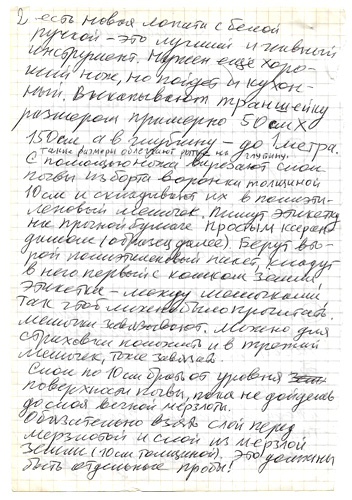 есть новая лопата с белой
ручкой - это лучший и главный
инструмент. Нужен ещё хоро-
ший нож, но пойдёт и кухон-
ный. Выкапывают траншейку
размером примерно 50см х
150см, а в глубину - до 1 метра.
такие размеры облегчают работу на глубину.
С помощью ножа вырезают слои
почвы из борта воронки толщиной
10см и складывают их в полиэти-
леновый мешочек. Пишут этикетку
на прочной бумаге простым каран-
дашом (образец далее). Берут вто-
рой полиэтиленовый пакет, кладут
в него первый с комком земли,
этикетки - между мешочками
так чтоб можно было прочитать.
мешочки завязывают. Можно для
страховки положить и в третий
мешочек, тоже завязав.
Слои по 10см брать от уровня
поверхности почвы, пока не дойдёшь
до слоя вечной мерзлоты.
Обязательно взять слой перед
мерзлотой и слой из мерзлой
земли (10см толщиной). Это должны
быть отдельные пробы!